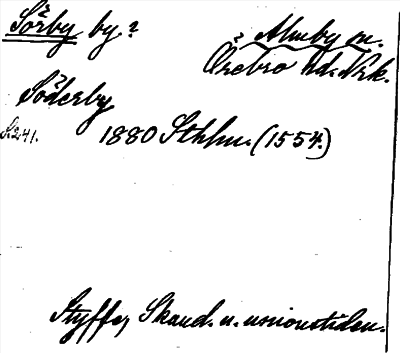 Sörby by? Almby sn.
Örebro hd. Nrk.
Söderby
S. 241. 1880 Sthlm. (1554.)
Styffe, Skand. u. unionstiden.